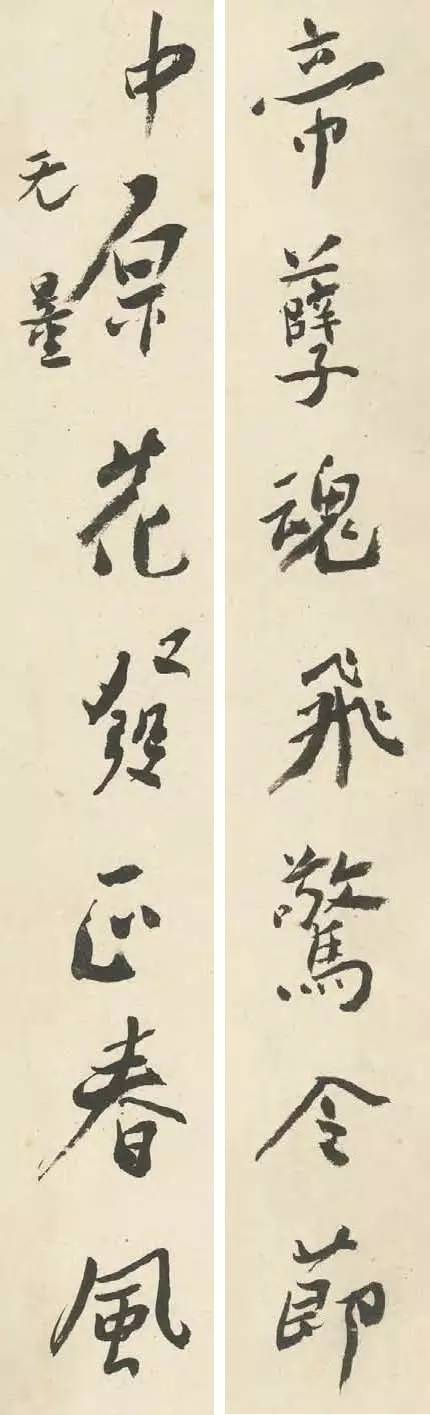 帝孽魂飛驚令莭
中原花發正春風
无量